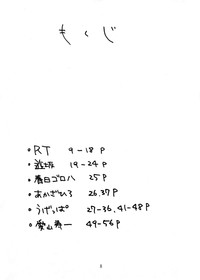 もくじ
・RT 9-18P
・遊坂 19-24P
・春日ゴロハ 25P
・あかざひろ 26.37P
・うげっぱ 27-36.41-48P
・愛山寿一 49-56P